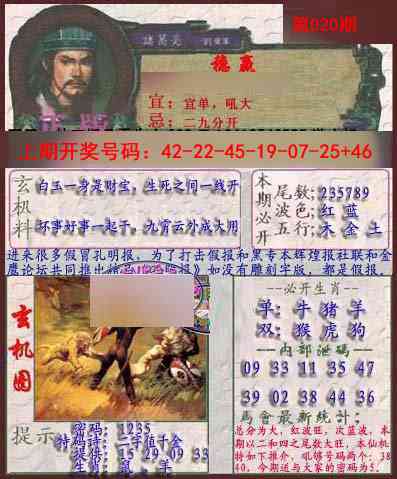 第020期
諸葛亮
稳赢
宜：宜单，吼大
忌：二九分开
上期开奖号码：42-22-45-19-07-25+46
玄机料
白玉一身是财宝，生死之间一线开
坏事好事一起干，九宵云外成大用
本期必开
尾数;235789
波色;红 蓝
五行;木 金 土
进来很多假冒孔明报，为了打击假报和黑专本辉煌报社联和金
鹰论坛共同推出
如没有雕刻字版，都是假报，
玄机图
--必开生肖--
单:牛 猪 羊
双:猴 虎 狗
--内部泄码--
09 33 11 35 47
39 02 38 44 36
馬會最新統計:
总分为大，红波旺，次蓝波，本
期以二和四之尾数大旺，本仙机
特如下推介，吼够号码两个：38
40。今期送与大家的密码为5。
提示
密码：1235
特码诗：二字值千金
提供：15 29 09 33
生肖：鼠 羊